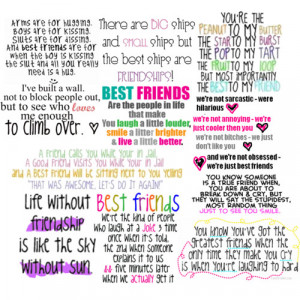 Arms are for hugging.
Boys are for kissing.
Sluts are for dissing.
And best friends are for
when the boy is kissing
the slut and all you really
need is a hug.
There are BIG ships
and small ships but
the best ships are
FRIENDSHIPS!
YOU'RE THE
PEANUT TO MY BUTTER
THE STAR TO MY BURST
THE POP TO MY TART
THE FRUIT TO MY LOOP
BUT MOST IMPORTANTLY
THE BEST TO MY FRIEND
I've built a wall,
not to block people out,
but to see who loves
me enough
to climb over.
BEST FRIENDS
Are the people in life
that make
You laugh a little louder,
smile a little brighter
& live a little better.
we're not sarcastic - were
hilarious
we're not annoying - we're
just cooler then you
we're not bitches - we just
don't like you
and we're not obsessed -
we're just best friends
A friend calls you while your in jail
A good friend visits you while your in jail
and a best friend will be sitting next to you yelling
"THAT WAS AWESOME, LET'S DO IT AGAIN!"
YOU KNOW SOMEONE
IS A TRUE FRIEND WHEN,
YOU ARE ABOUT TO
BREAK DOWN & CRY, BUT
THEY WILL SAY THE STUPIDEST,
MOST RANDOM THING
JUST TO SEE YOU SMILE.
Life without
friendship
is like the sky
without sun.
Best friends
we're the kind of people
who laugh at a joke 3 times
once when it's told,
the 2nd when someone
explains it to us
&& five minutes later
when we actually get it
You know you've got the
greatest friends when the
only time they make you cry
is when you're laughing to hard